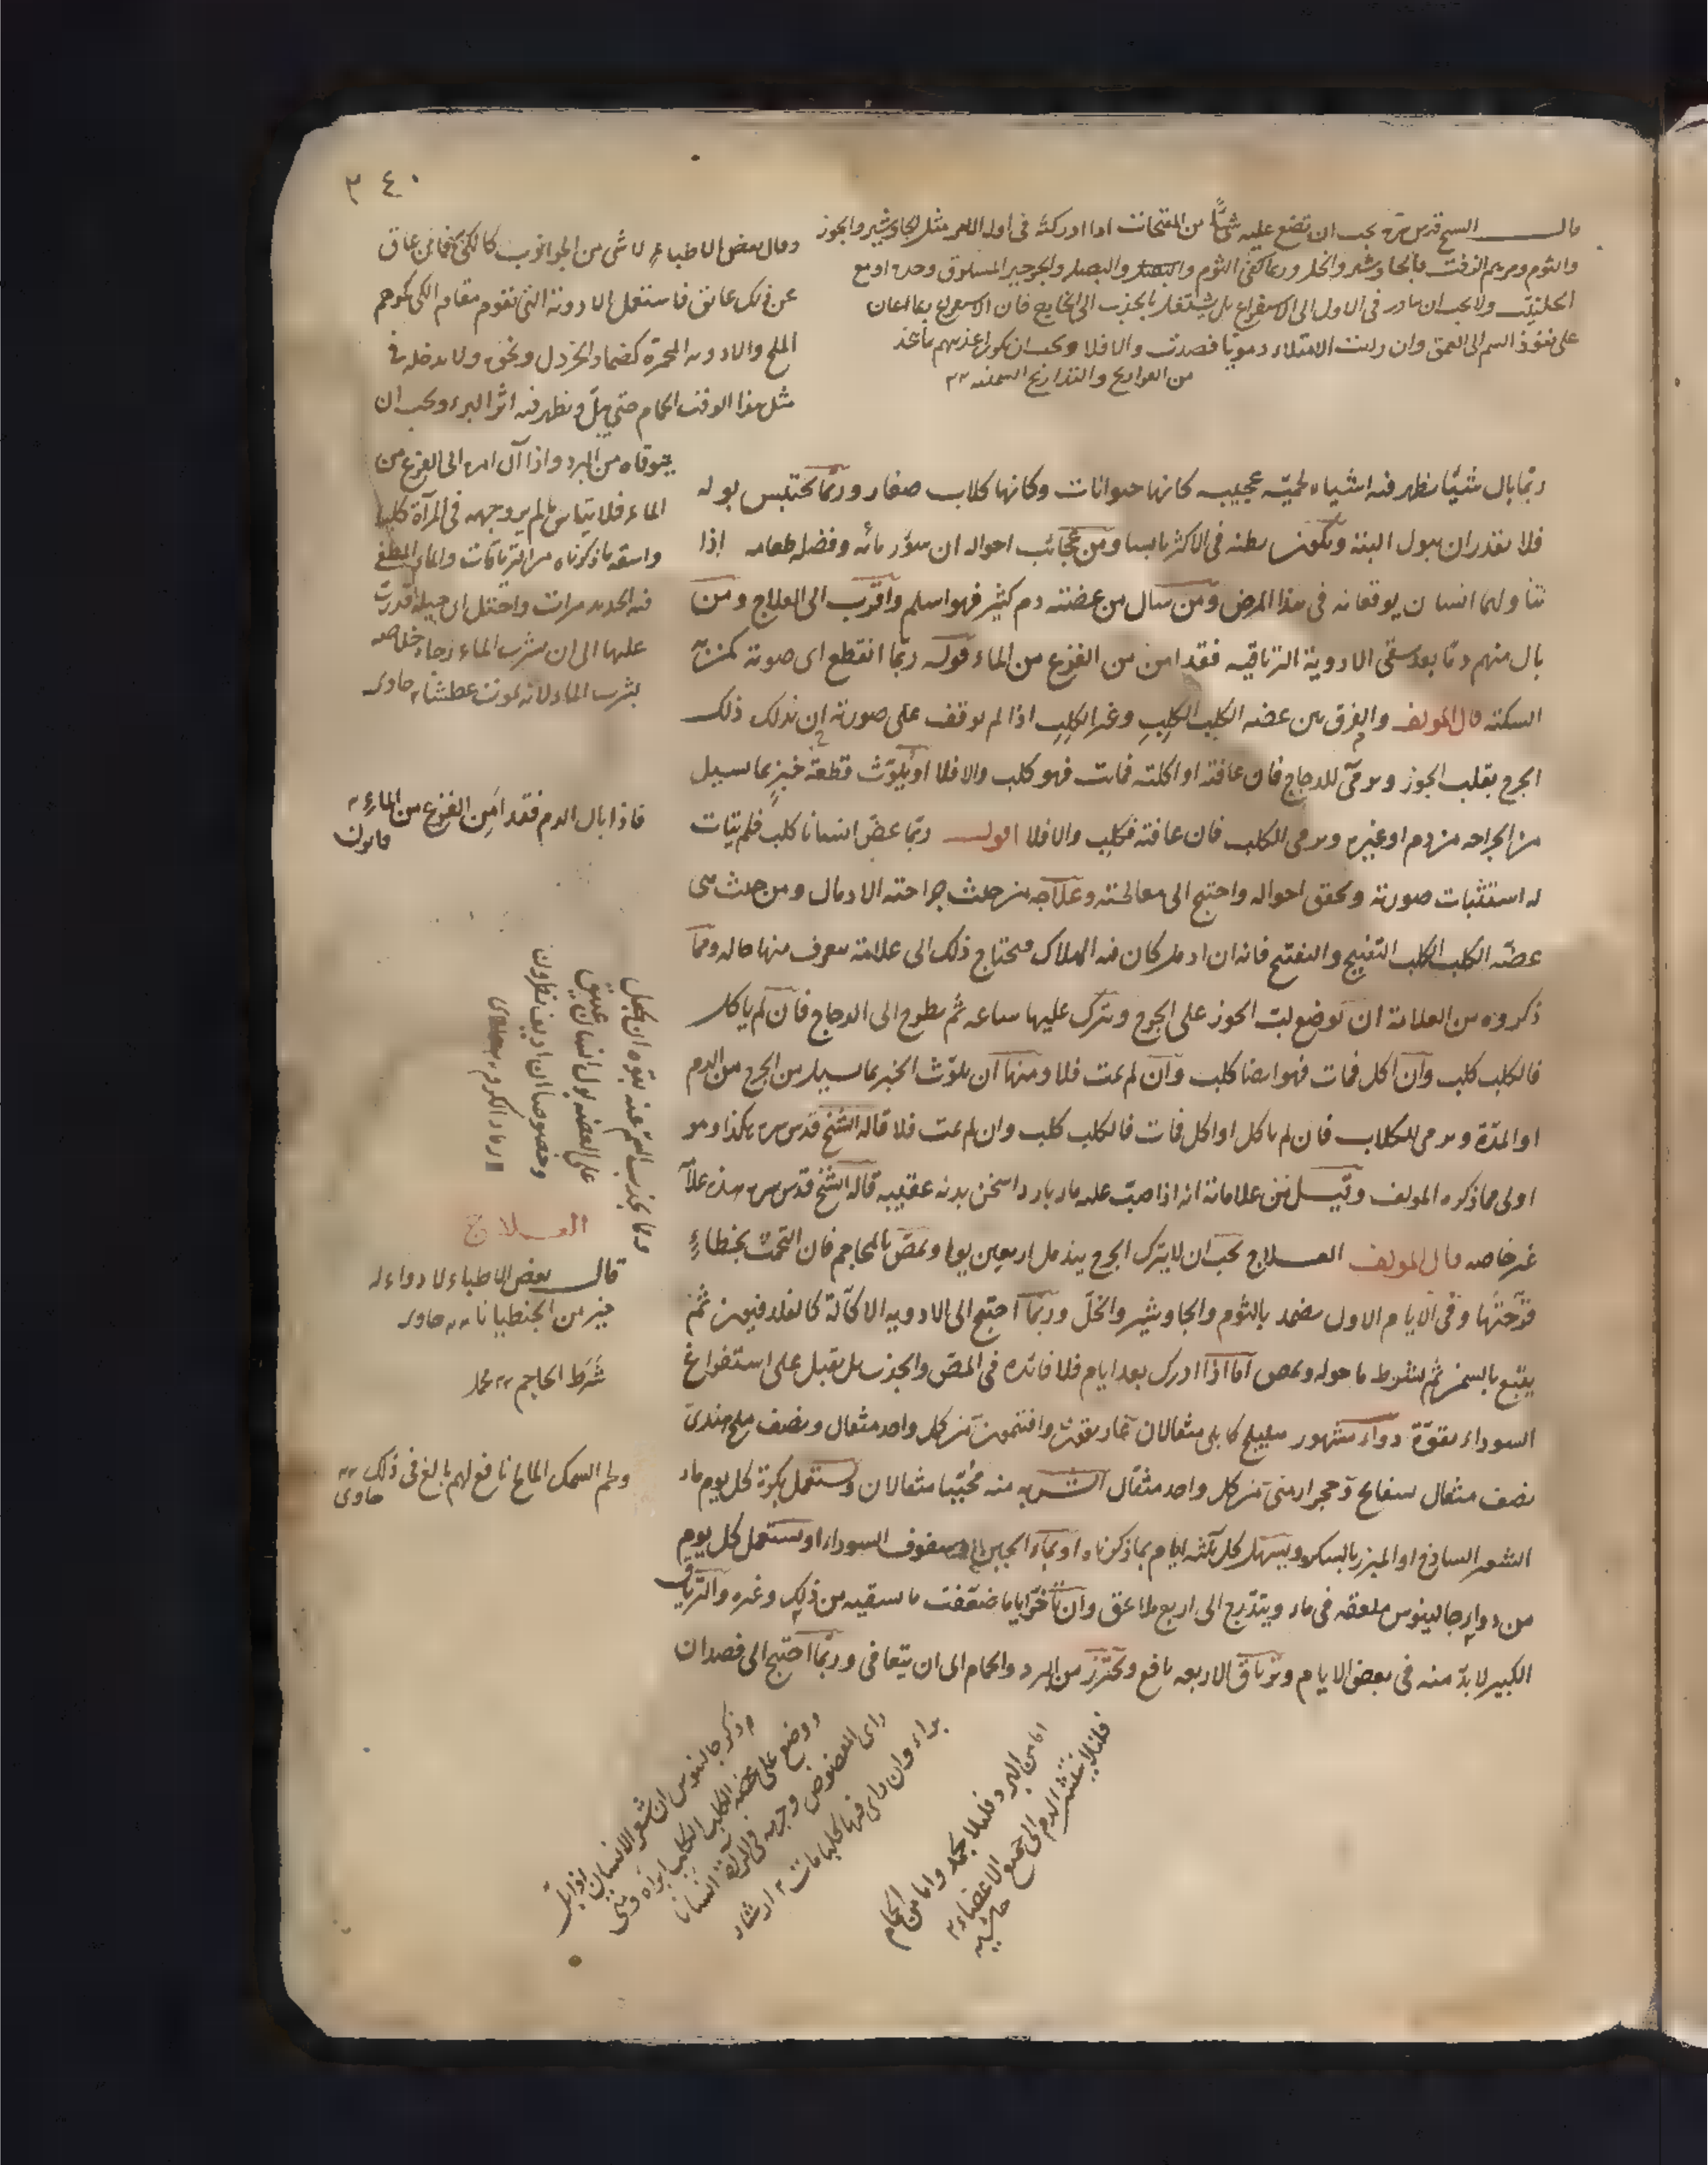 ٣٤٠
قال الشيخ قدس سره يجب ان تضع عليه شيئًا من المفتحات اذا ادركته فى اول الامر مثل الجاوشير والجوز
والثوم ومرهم الزفت بالجاوشير والخل وربما كفى الثوم والبصل والبصل والجرجير المسلوق وحده او مع
الحلتيت ولا يجب ان يبادر فى الاول الى الاستفراغ بل يشتغل بالجذب الى الخارج فان الاستفراغ ربما اعان
على نفوذ السم الى العمق وان رايت الامتلاء دمويّا فصدت والا فلا ويجب ان يكون اغذيتهم ما تخذ
من الفراريج والتذاريج السمينه
وقال بعض الاطباء لا شى من الجواذب كالكىّ فامّا من عاق
عن ذلك عائق فاستعمل الادوية التى تقوم مقام الكى كمرهم
الملح والادويه المحمرة كضماد الخردل ونحوه ولا يدخله فى
مثل هذا الوقت الحمام حتى يبلّ ويظهر فيه اثر البرء ويجب ان
يتوقاه من البرد واذا آل امره الى الفزع من
الماء فلا تيأس ما لم ير وجهه فى المرآة كلبا
واسقه ما ذكرناه من الترياقات والماء المطفى
فيه الحديد مرات واحتل اى حيلة قدرت
عليها الى ان يشرب الماء رجاء خلاصه
بشرب الماء لانه يموت عطشا حاوى
ربّما بال شيئًا يظهر فيه اشياء لحميّه عجيبه كانها حيوانات وكانها كلاب صغار وربّما يحتبس بوله
فلا يقدر ان يبول البتة ويكون بطنه فى الاكثر يابسا ومن عجائب احواله ان سؤر مائه وفضله طعامه اذا
تناولهما انسان يوقعانه فى هذا المرض ومن سال من عضته دم كثير فهو اسلم واقرب الى العلاج ومن
بال منهم دمّا بعد سقى الادوية الترياقيه فقد امن من الفزع من الماء قوله ربّما انقطع اى صوته كمن به
السكتة قال المولف والفرق بين عضه الكلب الكلِب وغير الكلِب اذا لم يوقف على صورته ان يدلك ذلك
الجرح بقلب الجوز ويرمىّ للدجاج فان عافته او اكلته فماتت فهو كلب والا فلا او يلوّث قطعة خبزٍ بما يسيل
من الجراحه من دم او غيره ويرمى للكلب فان عافته فكلِب والا فلا اقول ربّما عضّ انسانا كلب فلم يتات
له استثبات صورته وتحقق احواله واحتيج الى معالجته وعلاجه من حيث جراحته الادمال ومن حيث هى
عضّه الكلب الكلِب التقييح والتفتيح فانه ان ادمل كان فيه الهلاك فيحتاج ذلك الى علامة يعرف منها حاله ومما
ذكروه من العلامة ان يوضع لبّ الجوز على الجرح ويترك عليها ساعه ثم يطرح الى الدجاج فان لم ياكل
فالكلب كلب وان اكل فمات فهو ايضا كلب وان لم يمت فلا ومنها ان يلوّث الخبز بما يسيل من الجرح من الدم
او المدّة ويرمى للكلاب فان لم ياكل او اكل فمات فالكلب كلب وان لم يمت فلا قاله الشيخ قدس سره هكذا وهو
اولى مما ذكره المولف وقيل من علاماته انه اذا صبّ عليه ماء بارد اسخن بدنه عقيبه قاله الشيخ قدس سره هذه علامة
غير خاصه قال المولف العلاج يجب ان لا يترك الجرح يندمل اربعين يوما ويمصّ بالمحاجم فان التحمت بخطاءٍ
فتحتَها وفى الايام الاول يضمد بالثوم والجاوشير والخلّ وربّما احتيج الى الادويه الاكّالة كالفلدفيون ثم
يتّبع بالسمن ثم يشرط ما حوله ويمص اما اذا ادرك بعد ايام فلا فائده فى المصّ والجذب بل يقبل على استفراغ
السوداء بقوّة دواء مشهور هليلج كابلى مثقالان غاريقون وافتيمون من كل واحد مثقال ونصف ملح هندىّ
نصف مثقال بسفايج وحجر ارمنىّ من كل واحد مثقال الشربه منه محبّبا مثقالان ويستعمل بكرة كل يوم ماء
الشعير الساذج او المبزر بالسكر ويسهل كل ثلثة ايام بما ذكرناه او بماء الجبن وسفوف السوداء او يستعمل كل يوم
من دواءِ جالينوس ملعقه فى ماء ويتدّرج الى اربع ملاعق وان تأخّر اياما ضعّفت ما سقيه من ذلك وغيره والترياق
الكبير لا بدّ منه فى بعض الايام وترياق الاربعه نافع ويحترز من البرد والحمام الى ان يتعافى وربّما احتيج الى فصد ان
فاذا بال الدم فقد امِن الفزع من الماءِ
قانون
ومما يجذب السّم عنه بقوه ان يجعل
على العضه بول انسان عتيق
وخصوصا ان اديف بنطرون
رماد الكرم
العلاج
قال بعض الاطباء لا دواء له
خير من الجنطيانا حاوى
شَرَط الحاجم محمد
ولحم السمك المالح نافع لهم بالغ فى ذلك
حاوى
ذكر جالينوس ان شعر الانسان اذا بلّ
ووضع على عضه الكلب الكلب ابراه ومتى
راى المعضوض وجهه فى المرآة انسانا
براء وان راى فيها كلبا مات ارشاد
اما من البرد فلئلا يجمد واما من الحمام
فلئلا ينتشر الدم الى جميع الاعضاء
حاشيه